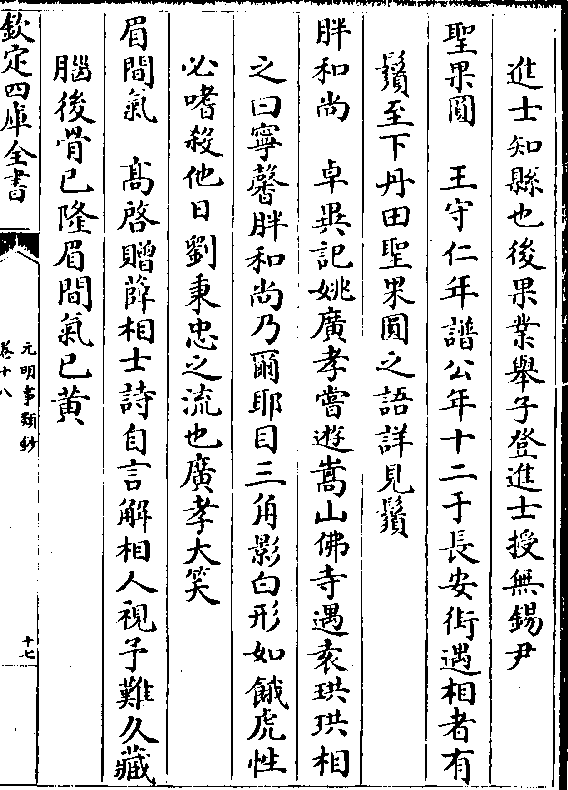 進士知縣也後果業舉子登進士授無錫尹
聖果圓　王守仁年譜公年十二于長安街遇相者有
鬚至下丹田聖果圓之語詳見鬚
胖和尚　卓異記姚廣孝嘗遊嵩山佛寺遇袁珙珙相
之曰寧馨胖和尚乃爾耶目三角影白形如餓虎性
必嗜殺他日劉秉忠之流也廣孝大笑
眉間氣　髙啓贈薛相士詩自言解相人視予難久藏
腦後骨已隆眉間氣已黄
欽定四庫全書
元明事類鈔
卷十八
十七